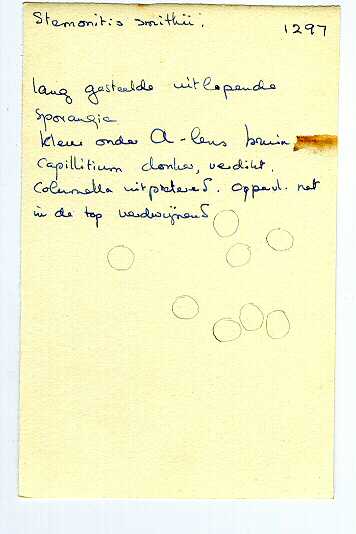 Stemonitis smithii.
1297
lang gesteelde uitlopende
sporangia
kleur onder A-lens bruin
Capillitium donker, verdikt.
Columella oppervl. net
in de top verdwijnend